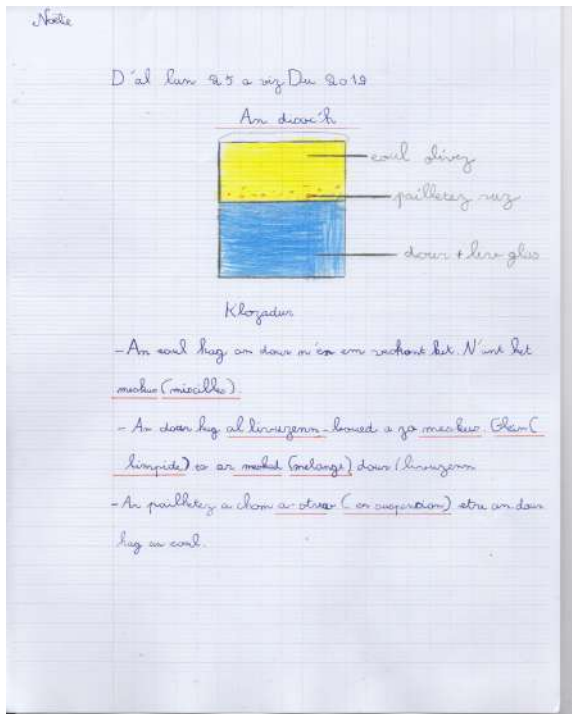 Noélie
D'al lun 25 a viz Du 2019
An diverc'h
eoul olivez
pailletez ruz
dour + livr glas
Klozadur
- An eoul hag an dour n'en em veskont ket. N'int ket
meskus (miscible).
- An dour hag al livuzenn-boued a zo meskus. Glan (
limpide) eo ar meskad (mélange) dour / livuzenn
- Ar pailhetez a chom a-istrew (en suspension) etre an dour
hag an eoul.